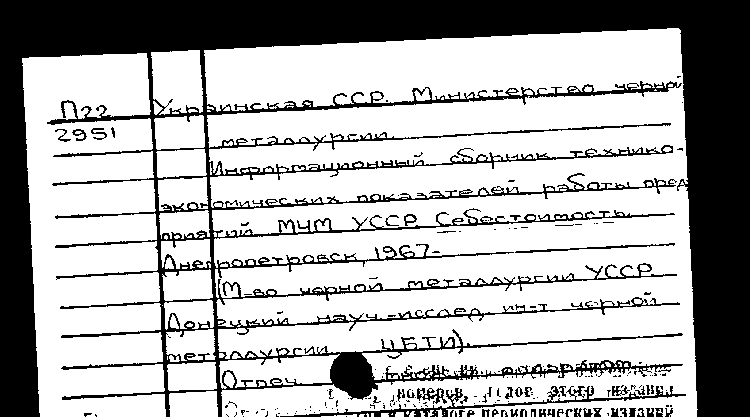 П22 Украинская ССР. Министерство черной
2951 металлургии.
Информационный сборник технико-
экономических показателей работы пред
приятий МЧМ УССР. Себестоимость.
Днепропетровск, 1967-
(М-во черной металлургии УССР
Донецкий науч.-исслед. ин-т черной
металлургии ЦБТИ).
Отпеч.
номеров, годов этого издания
в каталоге периодических изданий